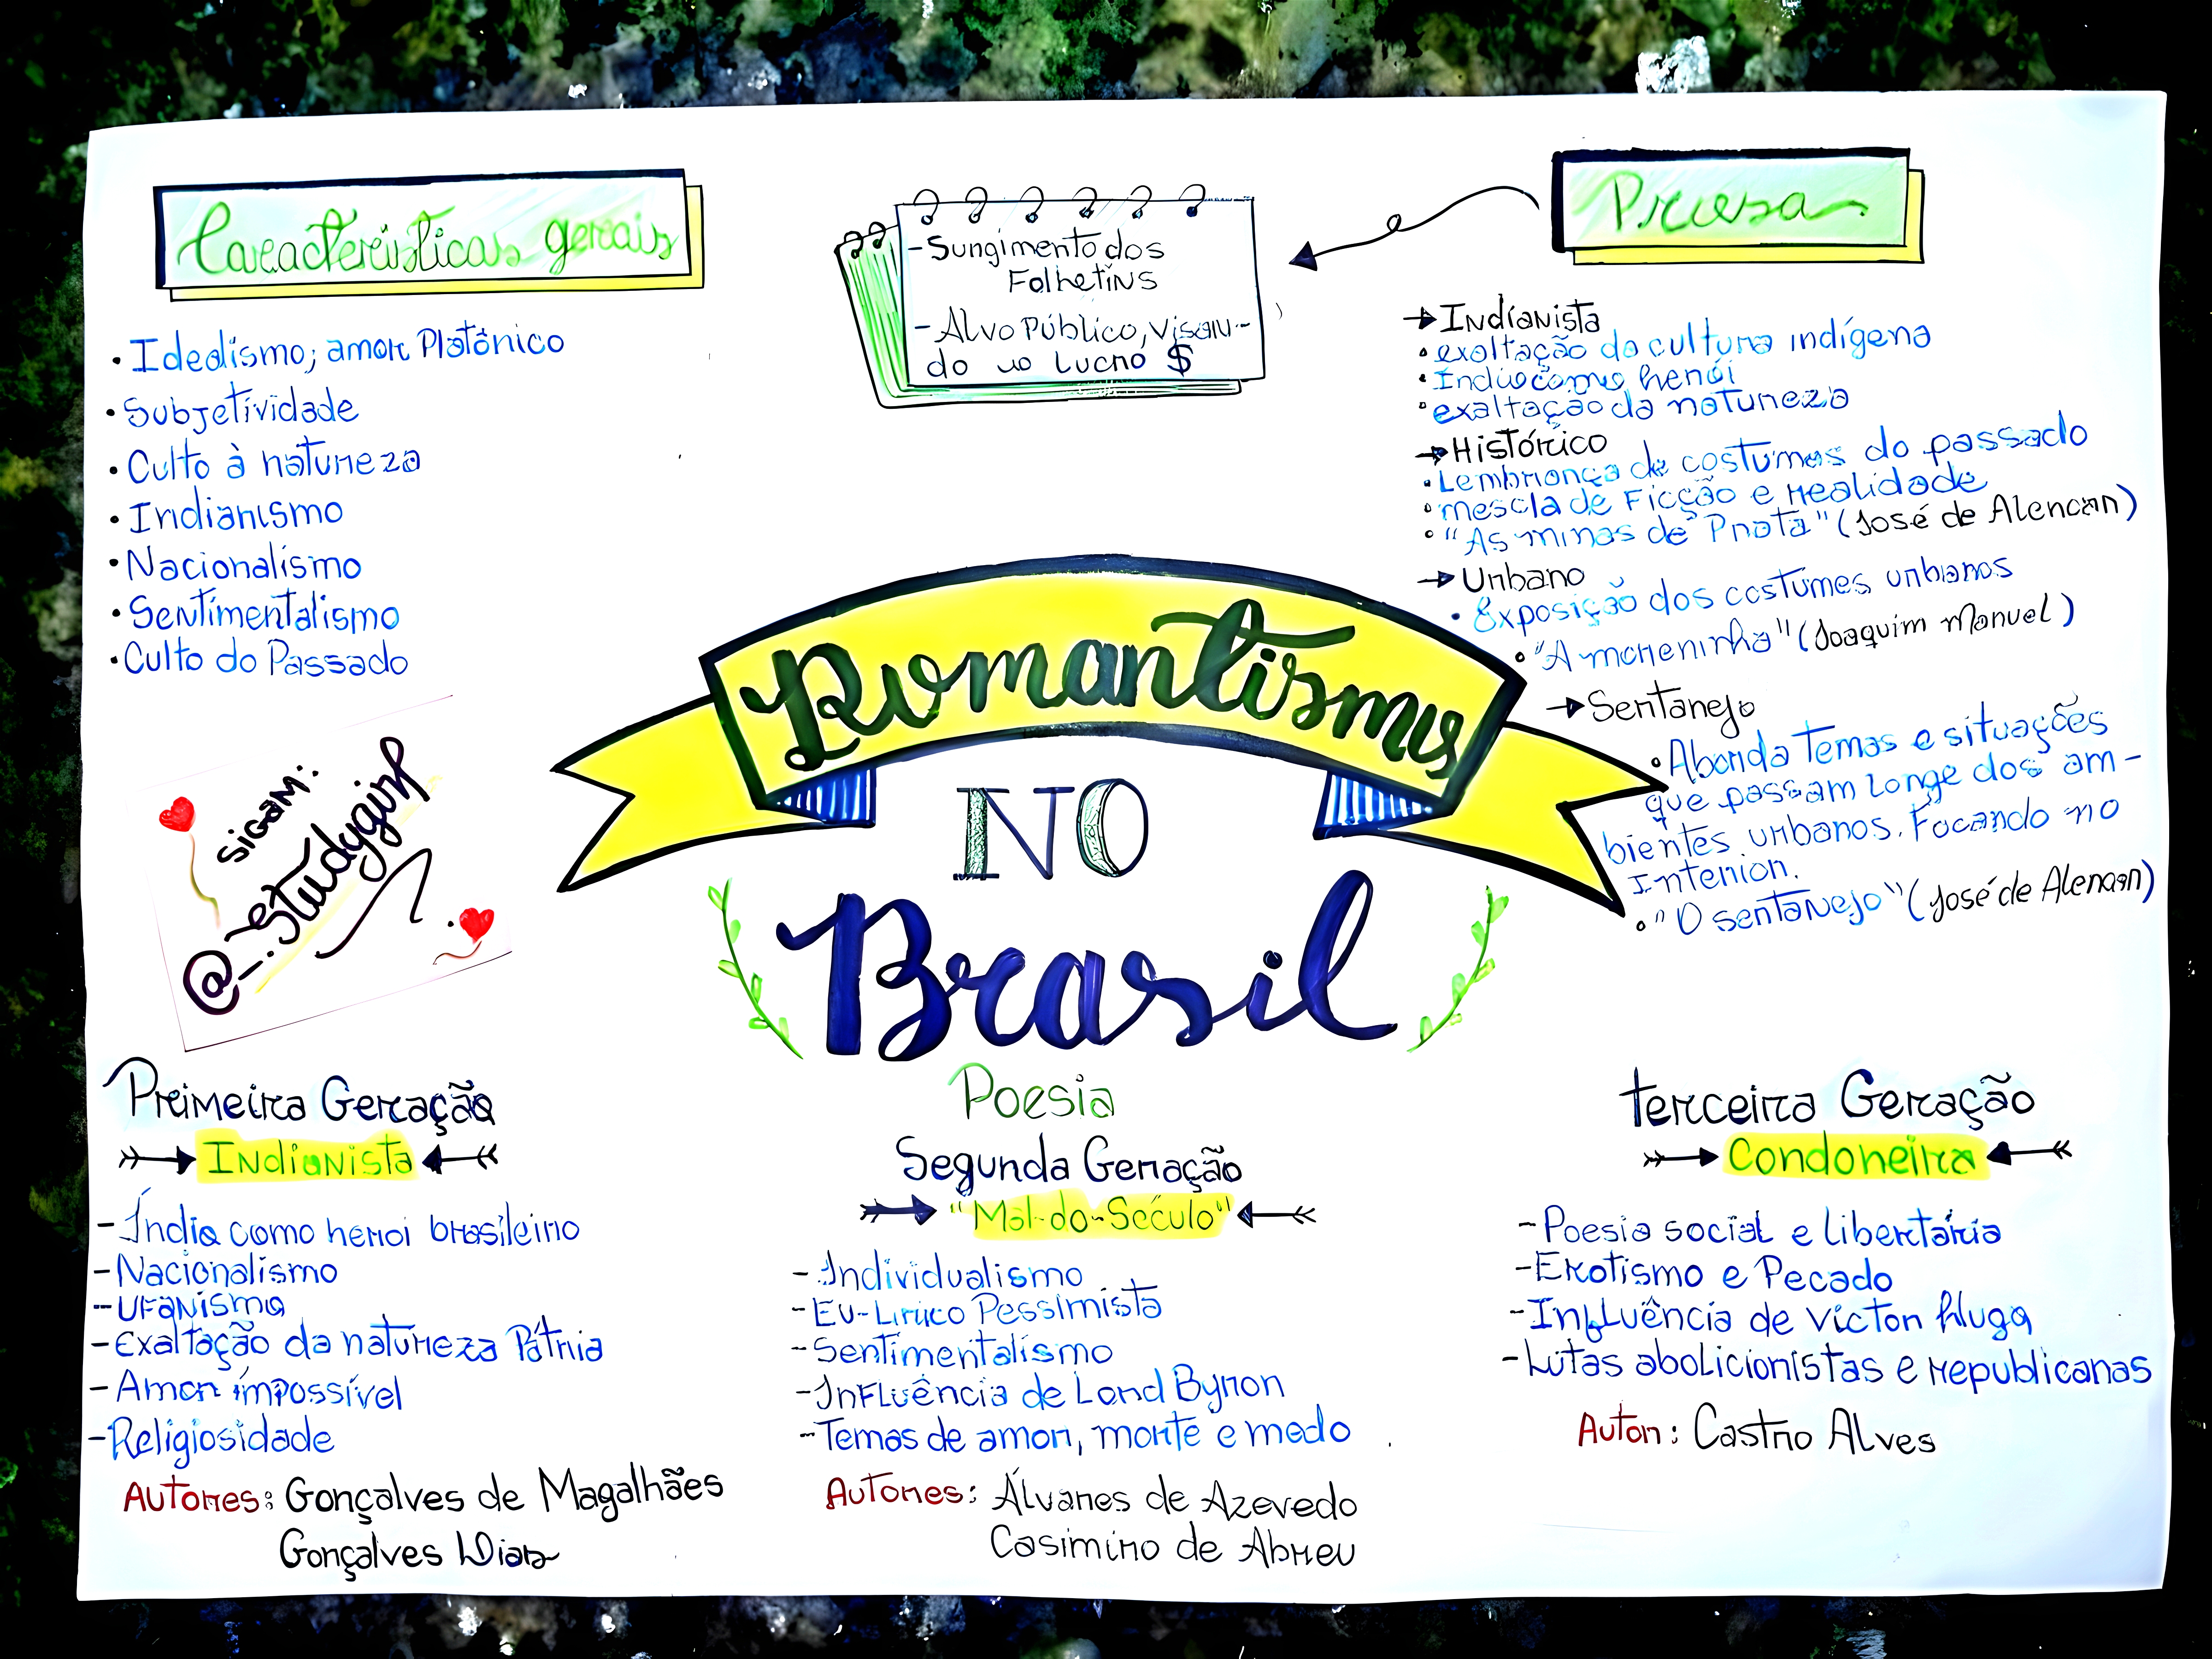 Características gerais
• Idealismo; amor Platônico
• Subjetividade
• Culto à natureza
• Indianismo
• Nacionalismo
• Sentimentalismo
• Culto do Passado
- Surgimento dos
Folhetins
- Alvo Público, visan-
do o Lucro $
Prosa
→ Indianista
• exaltação da cultura indígena
• Índio como herói
• exaltação da natureza
→ Histórico
• Lembrança de costumes do passado
• mescla de Ficção e realidade
• "As minas de Prata" (José de Alencar)
→ Urbano
• Exposição dos costumes urbanos
• "A moreninha" (Joaquim Manuel)
→ Sertanejo
• Aborda temas e situações
que passam longe dos am-
bientes urbanos. Focando no
Interior.
• "O sertanejo" (José de Alencar)
Romantismo
NO
Brasil
SIGAM:
@_.studygirl
Poesia
Primeira Geração
Indianista
- Índio como heroi brasileiro
- Nacionalismo
- Ufanismo
- Exaltação da natureza Pátria
- Amor impossível
- Religiosidade
Autores: Gonçalves de Magalhães
Gonçalves Dias
Segunda Geração
"Mal-do-Século"
- Individualismo
- Eu-Lírico Pessimista
- Sentimentalismo
- Influência de Lord Byron
- Temas de amor, morte e medo
Autores: Álvares de Azevedo
Casimiro de Abreu
Terceira Geração
Condoreira
- Poesia social e libertária
- Erotismo e Pecado
- Influência de Victor Hugo
- Lutas abolicionistas e republicanas
Autor: Castro Alves